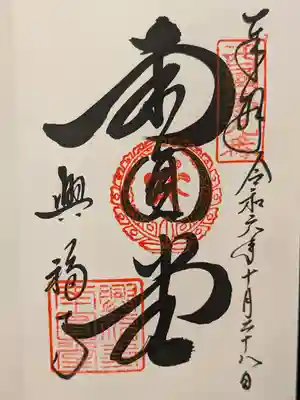 奉拝 令和六年十月二十八日
南円堂
興福寺